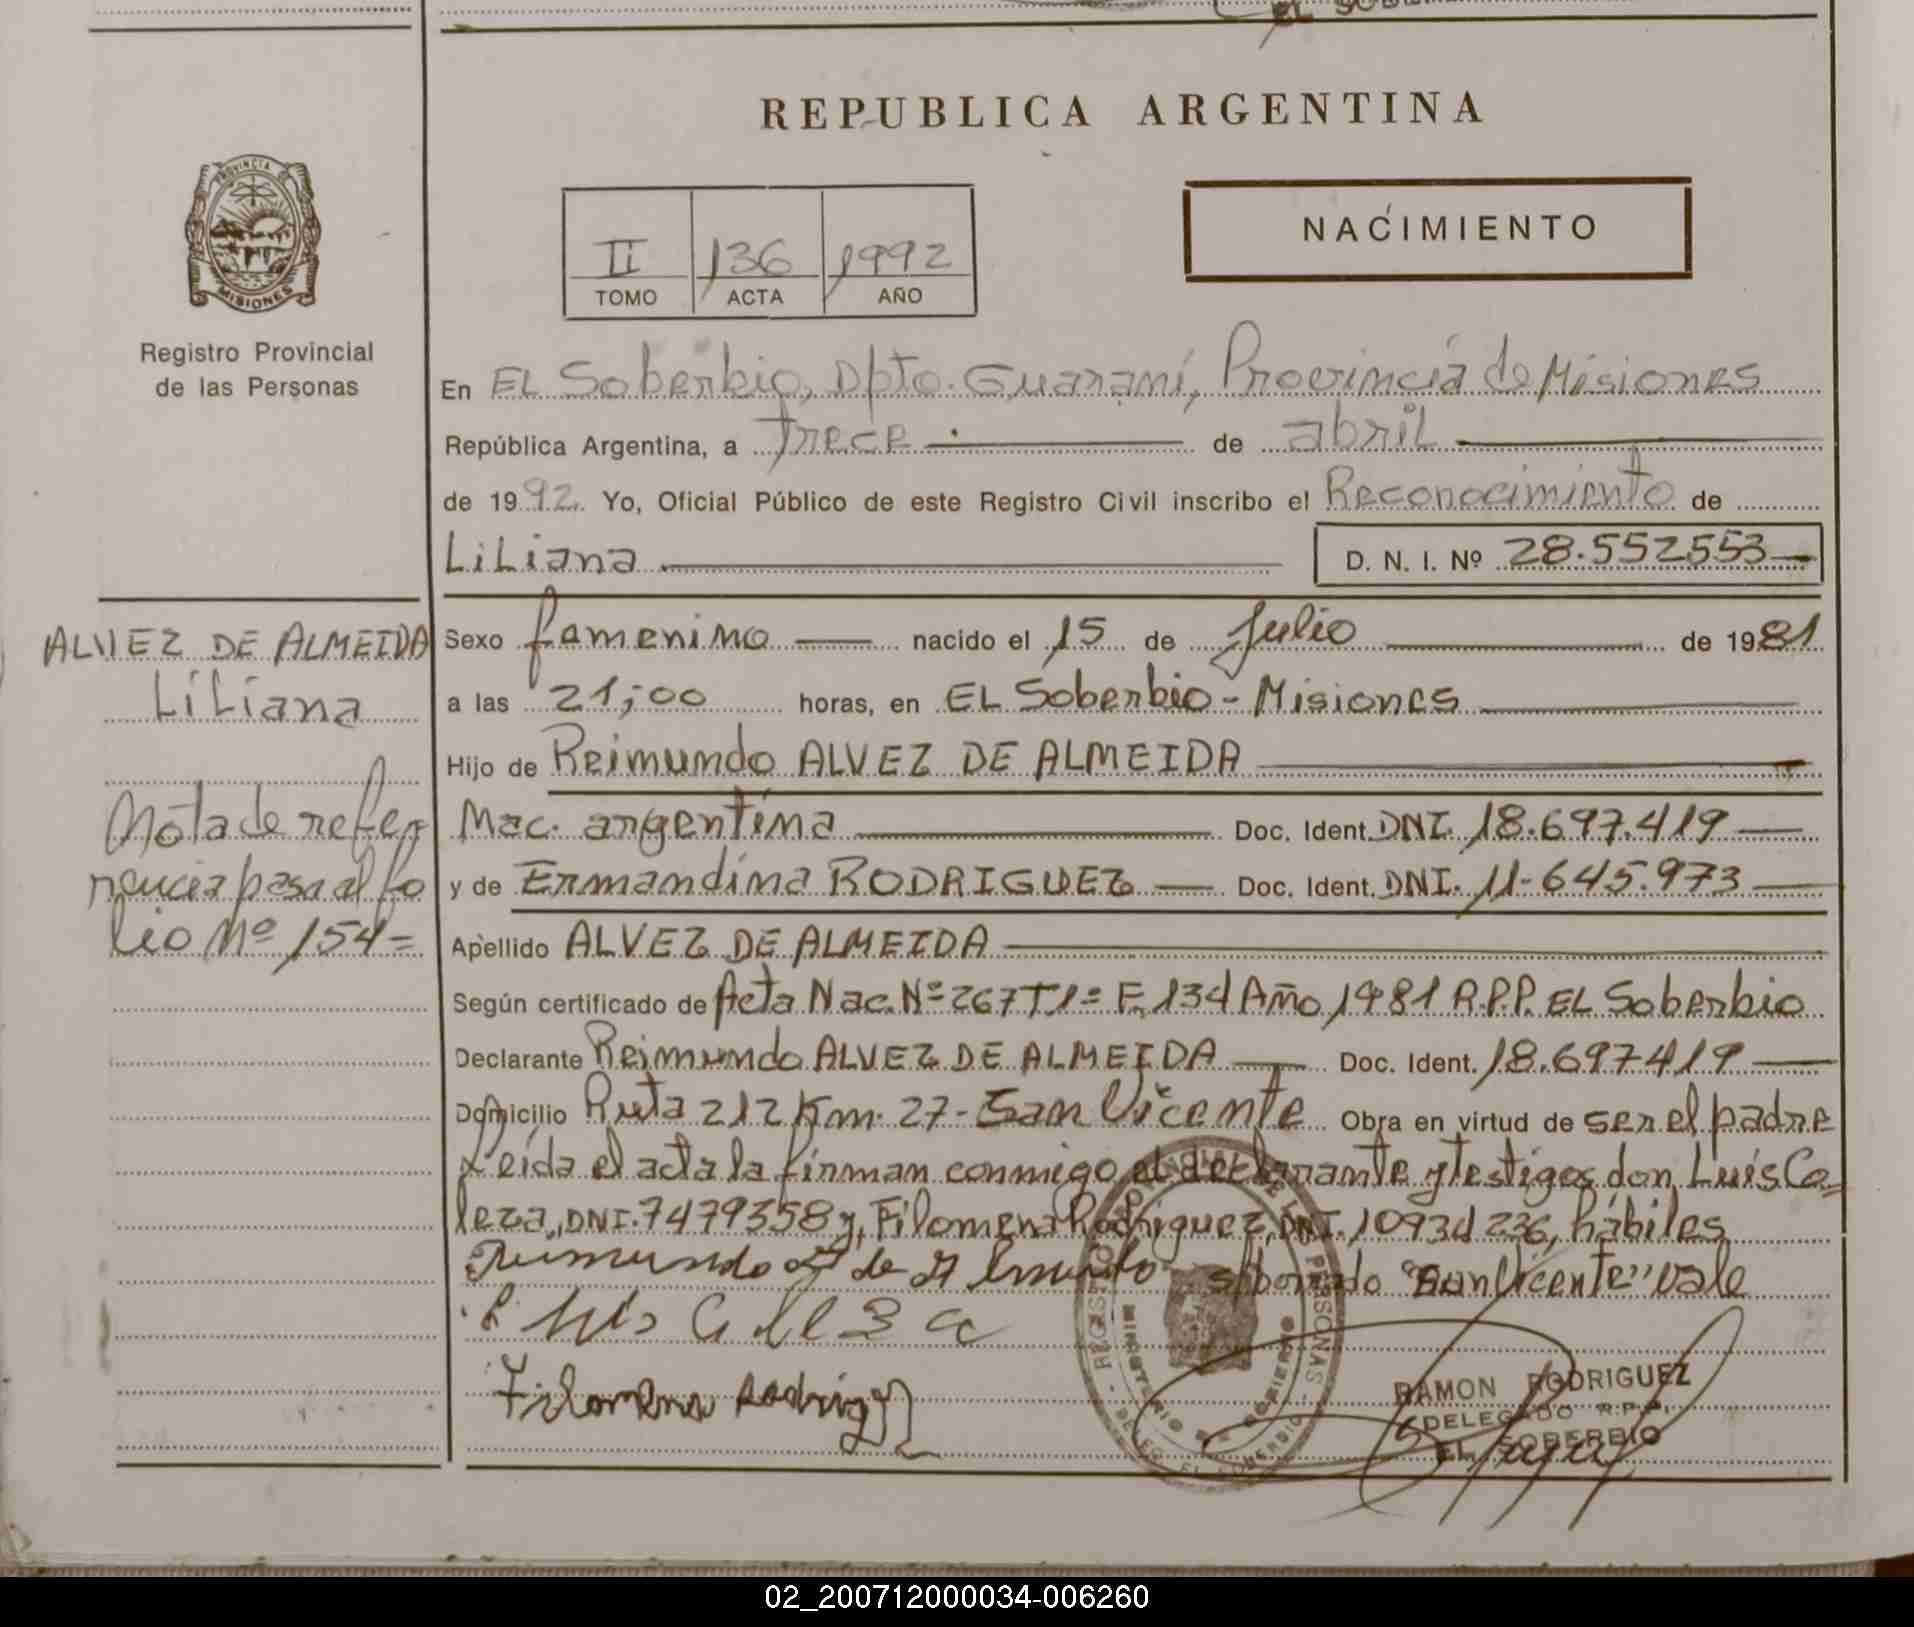 REPUBLICA ARGENTINA
PROVINCIA DE
MISIONES
Registro Provincial
de las Personas
NACIMIENTO
II 136 1992
TOMO ACTA AÑO
En EL Soberbio, Dpto. Guaraní, Provincia de Misiones
República Argentina, a Trece de abril
de 1992. Yo, Oficial Público de este Registro Civil inscribo el Reconocimiento de
Liliana D. N. I. Nº 28.552553
ALVEZ DE ALMEIDA
Liliana
Nota de refe
rencia pasa al fo
lio Nº 154=
Sexo femenino nacido el 15 de Julio de 1981
a las 21;00 horas, en EL Soberbio - Misiones
Hijo de Reimundo ALVEZ DE ALMEIDA
Nac. argentina Doc. Ident. DNI. 18.697.419
y de Ermandina RODRIGUEZ Doc. Ident. DNI. 11-645.973
Apellido ALVEZ DE ALMEIDA
Según certificado de Acta Nac. Nº 267 T1º F. 134 Año 1981 R.P.P. EL Soberbio
Declarante Reimundo ALVEZ DE ALMEIDA Doc. Ident. 18.697419
Domicilio Ruta 212 Km. 27 - San Vicente Obra en virtud de ser el padre
Leída el acta la firman conmigo el declarante y testigos don Luis Ca=
leza, DNI. 7479358 y Filomena Rodriguez, DNI. 10934236, hábiles
Reimundo de s/borrado "San Vicente" vale
Luis
Filomena Rodrigz
REGISTRO PROVINCIAL DE LAS PERSONAS
MINISTERIO DE GOBIERNO
DELEG. EL SOBERBIO
RAMON RODRIGUEZ
DELEGADO R.P.P.
EL SOBERBIO
02_200712000034-006260